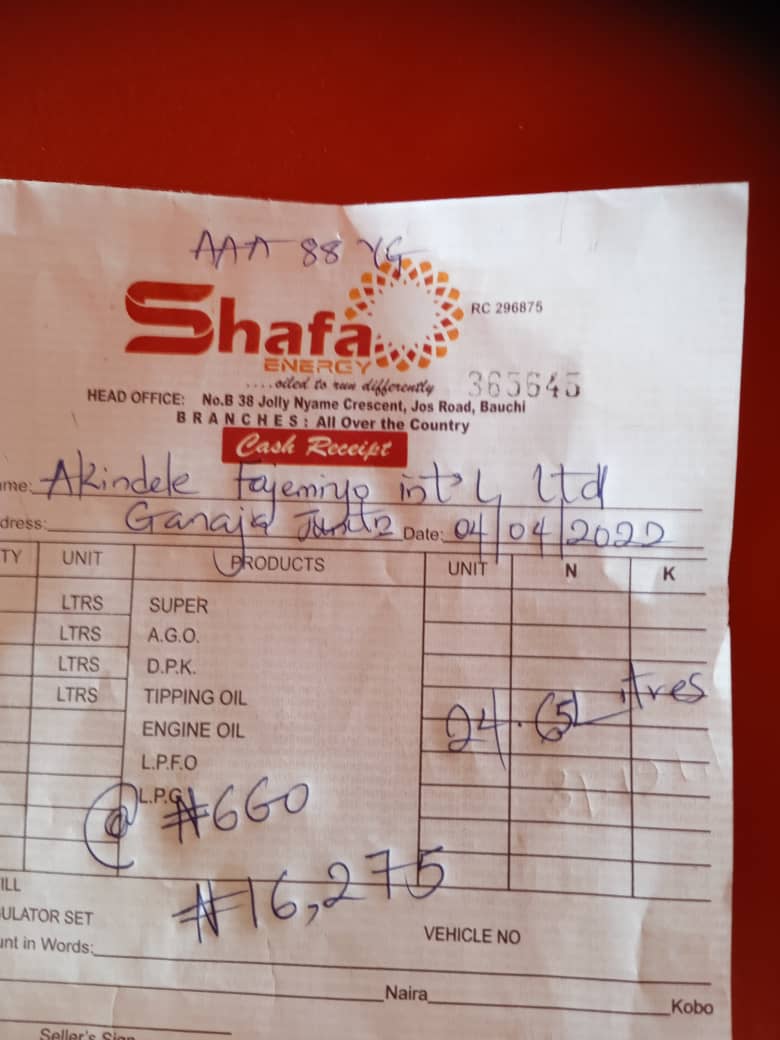 AAA 88 YG
Shafa
ENERGY
RC 296875
....oiled to run differently
365645
HEAD OFFICE: No.B 38 Jolly Nyame Crescent, Jos Road, Bauchi
BRANCHES: All Over the Country
Cash Receipt
me: Akindele Fajemiyo int'L Ltd
dress: Ganaja Date: 04/04/2022
TY UNIT PRODUCTS UNIT N K
LTRS SUPER
LTRS A.G.O.
LTRS D.P.K.
LTRS TIPPING OIL
24.65Litres
ENGINE OIL
L.P.F.O
L.P.G
@ ₦660
₦16,275
ILL
ULATOR SET
VEHICLE NO
unt in Words:
Naira Kobo
Seller's Sign